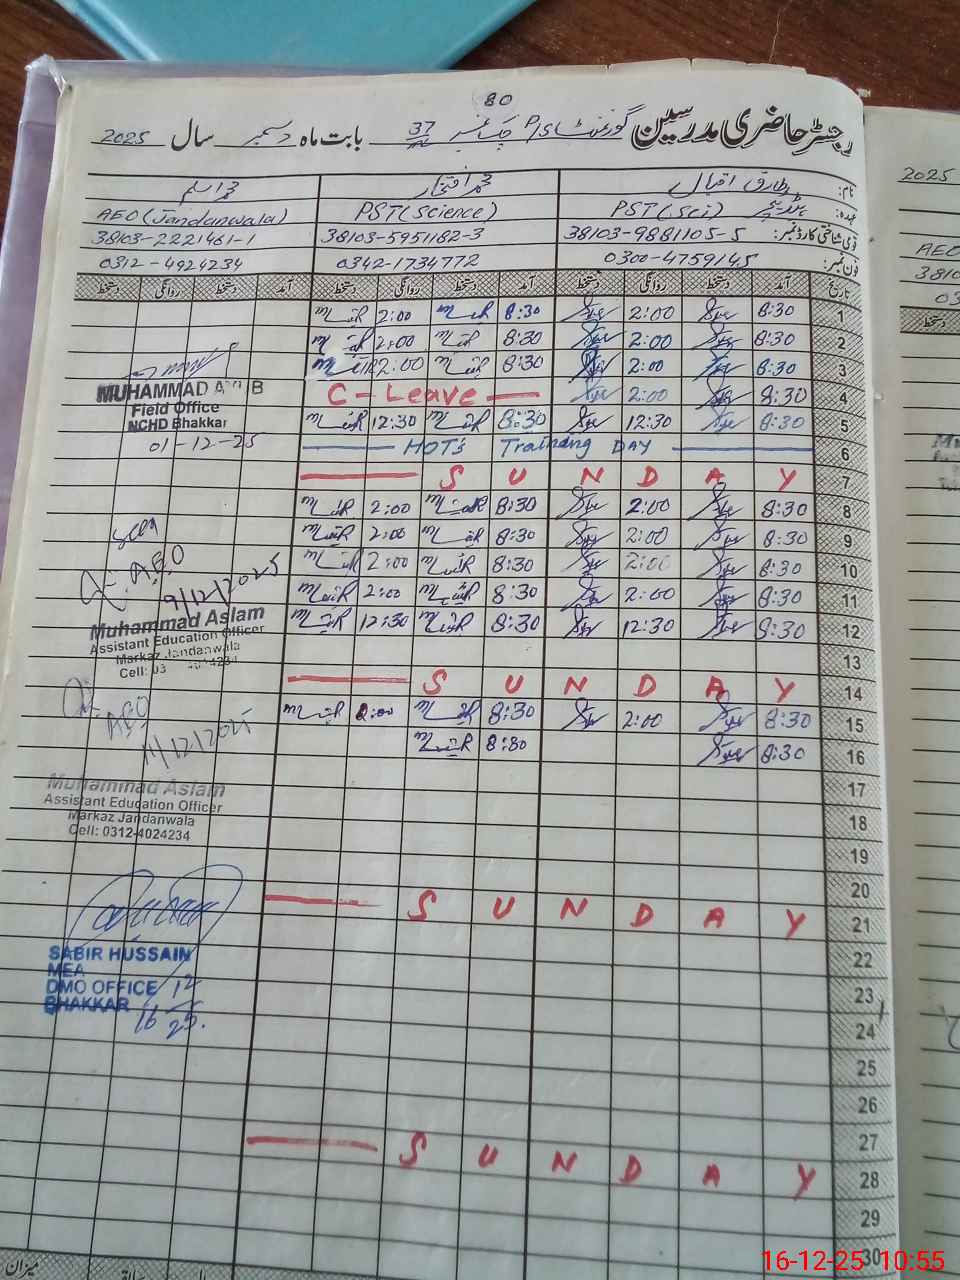 80
رجسٹر حاضری مدرسین گورنمنٹ P/S چک نمبر 37 بابت ماہ دسمبر سال 2025
نام: طارق اقبال محمد افتخار محمد اسلم
عہدہ: PST(.Sci) PST(Science) AEO(Jandanwala)
قومی شناختی کارڈ نمبر: 38103-9881105-5 38103-5951182-3 38103-2221461-1
فون نمبر: 0300-4759145 0342-1734772 0312-4924234
تاریخ آمد دستخط روانگی دستخط آمد دستخط روانگی دستخط آمد دستخط روانگی دستخط
1 8:30 2:00 8:30 2:00
2 8:30 2:00 8:30 2:00
3 8:30 2:00 8:30 2:00
4 8:30 2:00 C - Leave
5 8:30 12:30 8:30 12:30
6 HOT's Training DAY
7 S U N D A Y
8 8:30 2:00 8:30 2:00
9 8:30 2:00 8:30 2:00
10 8:30 2:00 8:30 2:00
11 8:30 2:00 8:30 2:00
12 8:30 12:30 8:30 12:30
13
14 S U N D A Y
15 8:30 2:00 8:30 2:00
16 8:30 8:30
17
18
19
20
21 S U N D A Y
22
23
24
25
26
27
28 S U N D A Y
29
30
میزان
MUHAMMAD
Field Office
NCHD Bhakkar
01-12-25
Seen
AEO
9/12/2025
Muhammad Aslam
Assistant Education Officer
Markaz Jandanwala
Cell: 03 4024234
AEO
11/12/2025
Muhammad Aslam
Assistant Education Officer
Markaz Jandanwala
Cell: 0312-4024234
SABIR HUSSAIN
MEA
DMO OFFICE
BHAKKAR
16/12/25.
2025
AEO
3810
03
دستخط
16-12-25 10:55